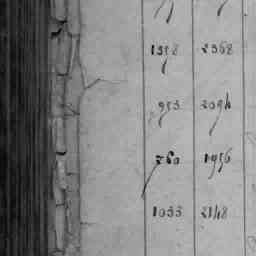 1398 2368
953 2094
760 1956
1033 2148